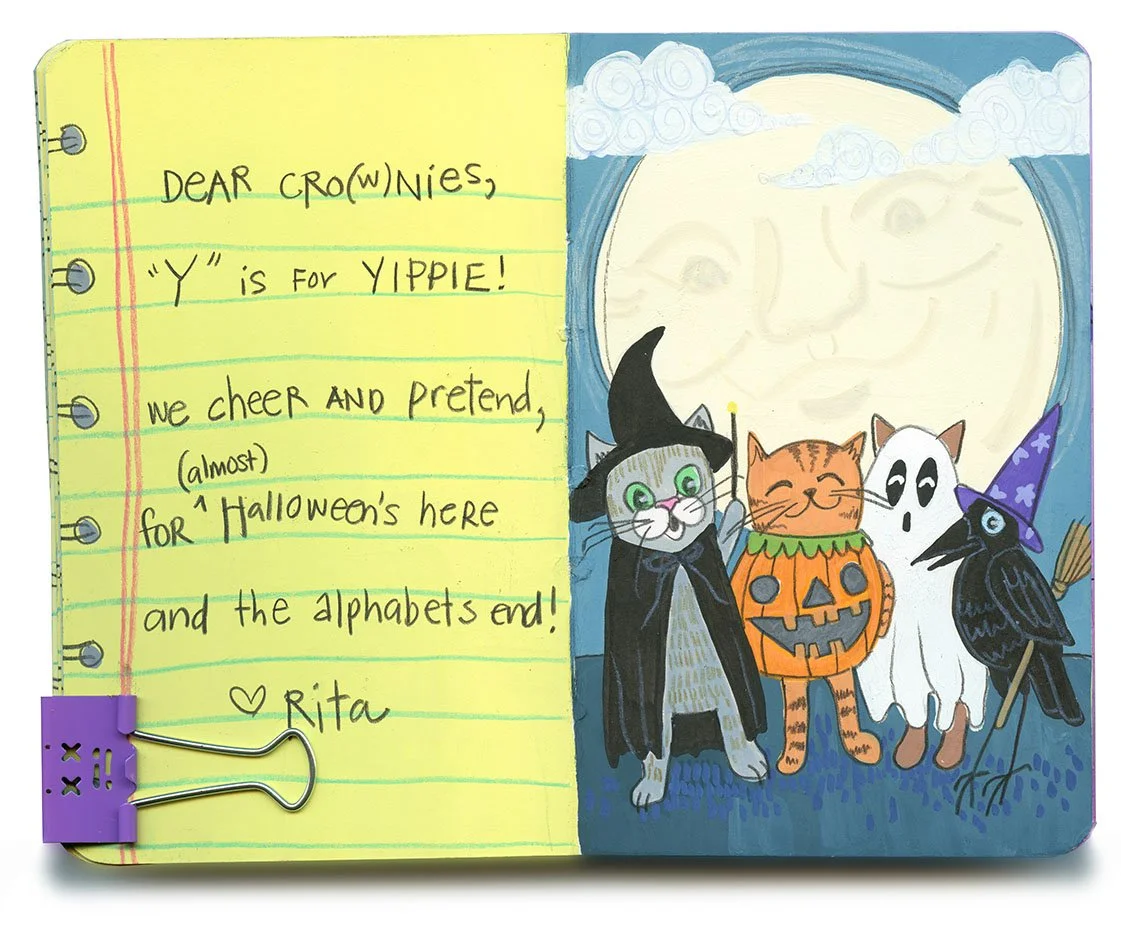 DEAR CRO(W)NIES,
"Y" is FOR YIPPIE!
we cheeR AND pRetend,
(almost)
foR ^ Halloween's heRe
and the alphabets end!
♡ Rita